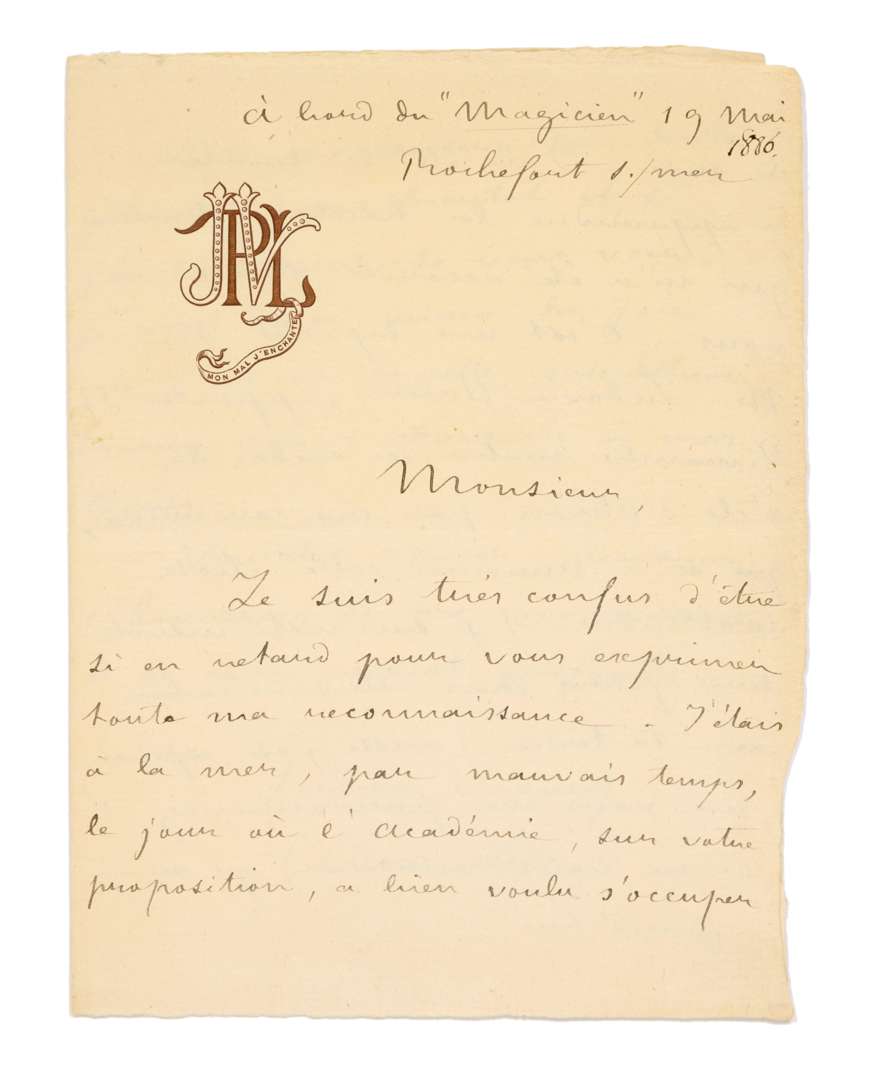 à bord du "Magicien" 19 Mai
1886.
Rochefort s./mer
JMPL
MON MAL J'ENCHANTE
Monsieur,
Je suis très confus d'être
si en retard pour vous exprimer
toute ma reconnaissance. J'étais
à la mer, par mauvais temps,
le jour où l'Académie, sur votre
proposition, a bien voulu s'occuper